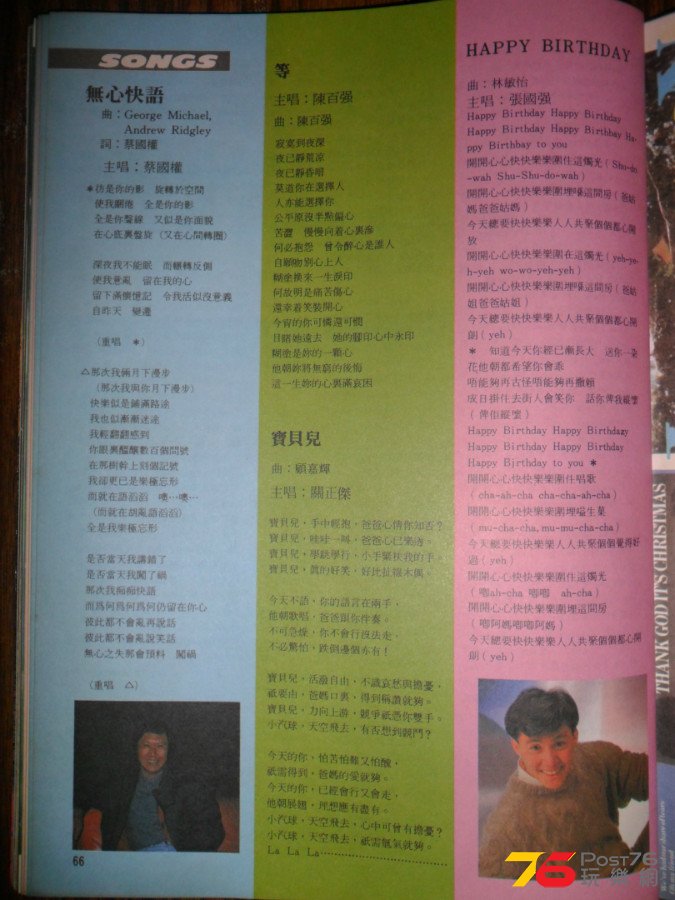 SONGS
無心快語
曲：George Michael,
Andrew Ridgley
詞：蔡國權
主唱：蔡國權
＊彷是你的影　旋轉於空間
使我睏倦　全是你的影
全是你聲線　又似是你面貌
在心底裏盤旋（又在心間轉圈）
深夜我不能眠　而輾轉反側
使我意亂　留在我的心
留下滿懷憶記　令我活似沒意義
自昨天　變遷
（重唱　＊）
△那次我倆月下漫步
（那次我與你月下漫步）
快樂似是鋪滿路途
我也似漸漸迷途
我輕翻翻感到
你眼裏醞釀數百個問號
在那樹幹上刻個記號
我卻更已是樂極忘形
而就在語滔滔　噢…噢…
（而就在胡亂語滔滔）
全是我樂極忘形
是否當天我講錯了
是否當天我闖了禍
那次我痴痴快語
而爲何爲何爲何仍留在你心
彼此都不會亂再說話
彼此都不會亂說笑話
無心之失那會預料　闖禍
（重唱　△）
66
等
主唱：陳百强
曲：陳百强
寂寞到夜深
夜已靜荒凉
夜已靜昏暗
莫道你在選擇人
人亦能選擇你
公平原沒半點偏心
苦澀　慢慢向着心裏滲
何必抱怨　曾令醉心是誰人
自願吻別心上人
糊塗換來一生淚印
何故明是痛苦傷心
還幸着笑裝開心
今宵的你可憐還可憫
目睹她遠去　她的腳印心中永印
糊塗是妳的一顆心
他朝妳將無窮的後悔
這一生妳的心裏滿哀困
寶貝兒
曲：顧嘉輝
主唱：關正傑
寶貝兒，手中輕抱，爸爸心情你知否？
寶貝兒，哇哇一叫，爸爸心已樂透。
寶貝兒，學跳學行，小手緊扶我的手。
寶貝兒，眞的好笑，好比扯線木偶。
今天不語，你的語言在兩手，
他朝歌唱，爸爸跟你伴奏。
不可急燥，你不會行沒法走，
不必驚怕，跌倒邊個亦有！
寶貝兒，活潑自由，不識哀愁與擔憂，
祇要由，爸媽口裏，得到稱讚就夠。
寶貝兒，力向上游，競爭祇憑你雙手。
小汽球，天空飛去，有否想到觀鬥？
今天的你，怕苦怕難又怕醜，
祇需得到，爸媽的愛就夠。
今天的你，已經會行又會走，
他朝展翅，理想應有盡有。
小汽球，天空飛去，心中可曾有擔憂？
小汽球，天空飛去，祇需氫氣就夠。
La La La…………
HAPPY BIRTHDAY
曲：林敏怡
主唱：張國强
Happy Birthday Happy Birthday
Happy Birthday Happy Birthbay Ha-
ppy Birthbay to you
開開心心快快樂樂圍住這燭光（Shu-do
-wah Shu-Shu-do-wah）
開開心心快快樂樂圍埋喺這間房（爸姑
媽爸爸姑媽）
今天總要快快樂樂人人共聚個個都心開
放
開開心心快快樂樂圍在這燭光（yeh-ye-
h-yeh wo-wo-yeh-yeh）
開開心心快快樂樂圍埋喺這間房（爸姑
姐爸爸姑姐）
今天總要快快樂樂人人共聚個個都心開
朗（yeh）
＊　知道今天你經已漸長大　送你一朵
花他朝都希望你會乖
唔能夠再古怪唔能夠再撒賴
成日掛住去街人會笑你　話你俾我縱壞
（俾佢縱壞）
Happy Birthday Happy Birthdayy
Happy Birthday Happy Birthday
Happy Bjrthday to you ＊
開開心心快快樂樂圍住唱歌
（cha-ah-cha cha-cha-ah-cha）
開開心心快快樂樂圍埋嗑生菓
（mu-cha-cha,mu-mu-cha-cha）
今天總要快快樂樂人人共聚個個覺得好
過（yeh）
開開心心快快樂樂圍住這燭光
（啲ah-cha 啲啲　ah-cha）
開開心心快快樂樂圍埋這間房
（啲阿媽啲啲阿媽）
今天總要快快樂樂人人共聚個個都心開
朗（yeh）
THANK GOD IT'S CHRISTMAS
Post76
玩樂網